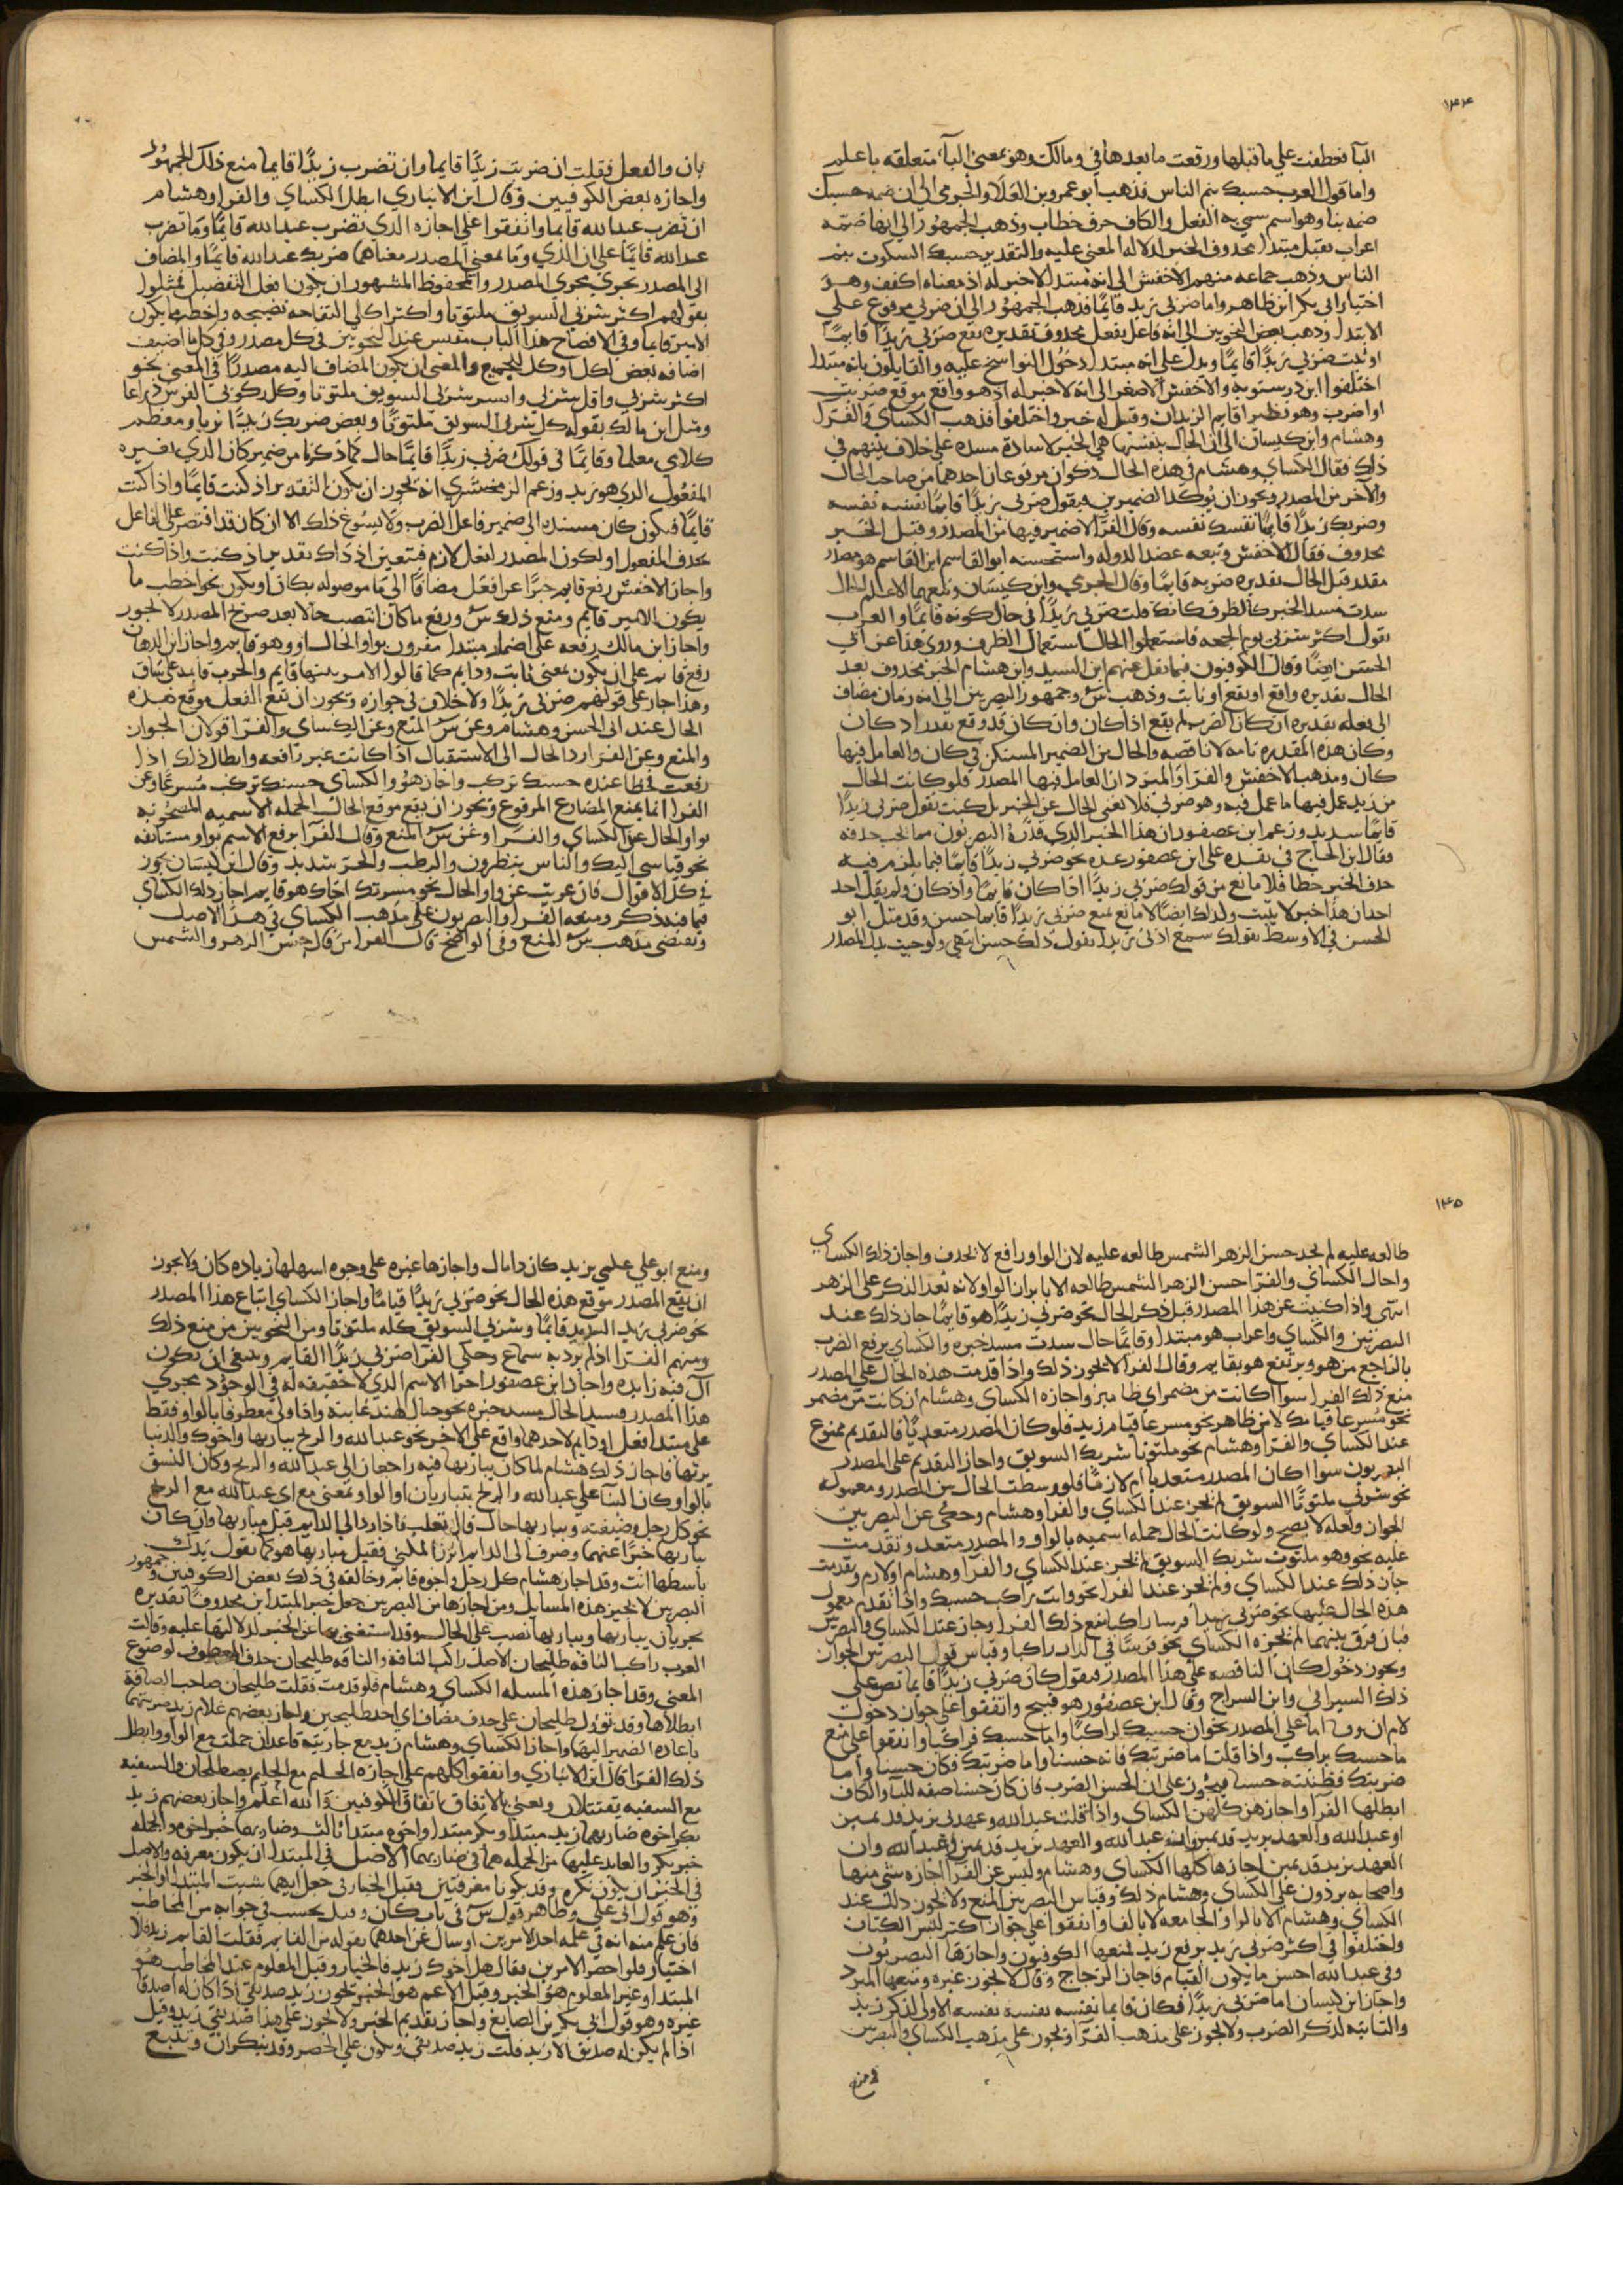 ١٤٤
البآ فعطفت علي ما قبلها ورفعت ما بعدها في ومالك وهو بمعنى البآ متعلقه باعلم
واما قول العرب حسبك ينم الناس فذهب ابو عمرو بن العلا والجرمي الى ان ضمه حسبك
ضمه بنا وهو اسم سمي به الفعل والكاف حرف خطاب وذهب الجمهور الي انها ضمه
اعراب فقيل مبتدا محذوف الخبر لدلاله المعنى عليه والتقدير حسبك السكوت ينم
الناس وذهب جماعه منهم الى انه مبتدا لا خبر له اذ معناه اكفف وهو
اختيار ابي بكر بن طاهر واما ضربي زيدا قايمًا فذهب الجمهور الى ان ضربي مرفوع علي
الابتدا وذهب بعض النحويين الى انه فاعل بفعل محذوف تقديره يقع ضربي زيدًا قايمًا
او ثبت ضربي زيدًا قايمًا ويدل على انه مبتدا دخول النواسخ عليه والقايلون بانه مبتدا
اختلفوا ابن درستويه والاخفش الاصغر الى انه لا خبر له اذ هو واقع موقع ضربت
او اضرب وهو نظير اقايم الزيدان وقيل له خبر واختلفوا فذهب الكساي والفرا
وهشام وابن كيسان الى ان الحال بنفسها هي الخبر لا سادة مسده على خلاف بينهم في
ذلك فقال الكساي وهشام في هذه الحال ذكران مرفوعان احدهما من صاحب الحال
والآخر من المصدر ويجوز ان يوكد الضميرين فيقول ضربي زيدًا قايمًا نفسه نفسه
وضربك زيدًا قايمًا نفسك نفسه وقال الفرا لا ضمير فيها من المصدر وقيل الخبر
محذوف فقال الاخفش وتبعه عضد الدوله واستحسنه ابو القاسم ابن القاسم هو مصدر
مقدر قبل الحال تقديره ضربه قايمًا وقال الجرمي وابن كيسان وتبعهما الاعلم الحال
سدت مسد الخبر كالظرف كانك قلت ضربي زيدًا في حال كونه قايمًا والعرب
تقول اكثر شربي يوم الجمعه فاستعملوا الحال استعمال الظرف وروي هذا عن ابي
الحسن ايضًا وقال الكوفيون فيما نقل عنهم ابن السيد وابن هشام الخبر محذوف بعد
الحال تقديره واقع او يقع او ثابت وذهب س وجمهور البصريين الى انه زمان مضاف
الى فعله تقديره ان كان الضرب لم يقع اذا كان وان كان قد وقع يقدر اذ كان
وكان هذه المقدره تامه لا ناقصه والحال من الضمير المستكن في كان والعامل فيها
كان ومذهب الاخفش والفرا والمبرد ان العامل فيها المصدر فلو كانت الحال
من زيد عمل فيها ما عمل فيه وهو ضربي فلا تغني الحال عن الخبر بل كنت تقول ضربي زيدًا
قايمًا شديد وزعم ابن عصفور ان هذا الخبر الذي قدره البصريون مما يجب حذفه
وقال ابن الحاج في نقده على ابن عصفور عده نحو ضربي زيدًا قايمًا فيما يلزم فيه
حذف الخبر خطا فلا مانع من قولك ضربي زيدًا اذا كان قايمًا واذ كان ولم يقل احد
احد ان هذا خبر لا يثبت ولذلك ايضًا لا مانع يمنع ضربي زيدًا قايمًا حسن وقد مثل ابو
الحسن في الاوسط بقولك سمع اذني زيدا يقول ذلك حسن انتهى ولو جيت بدل المصدر
بان والفعل فقلت ان ضربت زيدًا قايما وان تضرب زيدًا قايما منع ذلك الجمهور
واجازه بعض الكوفيين وقال ابن الانباري ابطل الكساي والفرا وهشام
ان تضرب عبد الله قايما واتفقوا على اجازه الذي تضرب عبد الله قايمًا وما تضرب
عبد الله قايمًا على ان الذي وما بمعنى المصدر معناهما ضربك عبد الله قايمًا والمضاف
الى المصدر يجري مجرى المصدر والمحفوظ المشهور ان يكون افعل التفضيل فمثلوا
بقولهم اكثر شربي السويق ملتوتا واكثر اكلي التفاحه نضيجه واخطب ما يكون
الامير قايما وفي الافصاح هذا الباب مقيس عند النحويين في كل مصدر وفي كل ما اضيف
اضافه بعض لكل او كل للجميع والمعنى ان يكون المضاف اليه مصدرًا في المعنى نحو
اكثر شربي واقل شربي وايسر شربي السويق ملتوتا وكل ركوبي الفرس دراعا
ومثل ابن مالك بقوله كل شربي السويق ملتوتًا وبعض ضربك زيدًا بريا ومعظم
كلامي معلما وقايمًا في قولك ضربي زيدًا قايمًا حال كما ذكرنا من ضمير كان الذي يفسره
المفعول الذي هو زيد وزعم الزمخشري انه يجوز ان يكون التقدير اذ كنت قايمًا واذا كنت
قايمًا فيكون كان مسندا الى ضمير فاعل الضرب ولا يسوغ ذلك الا ان كان قد اقتصر على الفاعل
بحذف المفعول او لكون المصدر لفعل لازم فيتعين اذ ذاك تقدير اذ كنت واذا كنت
واجاز الاخفش رفع قايم خبرًا عن افعل مضافًا الى ما موصوله بكان او يكون نحو اخطب ما
يكون الامير قايم ومنع ذلك س ورفع ما كان انتصب حالا بعد صريح المصدر لا يجوز
واجاز ابن مالك رفعه على اضمار مبتدا مقرون بواو الحال او وهو قايم واجاز ابن الدهان
رفع قايم على ان يكون بمعنى ثابت ودايم كما قالوا الامر بينهما قايم والحرب قايمه على ساق
وهذا جار على قولهم ضربي زيدًا ولا خلاف في جوازه ويجوز ان يقع الفعل موقع هذه
الحال عند ابي الحسن وهشام وعن س المنع وعن الكساي والفرا قولان الجواز
والمنع وعن الفرا رد الحال الى الاستقبال اذا كانت غير رافعه وابطال ذلك اذا
رفعت خطا عنده حسبك تركب واجاز هو والكساي حسبك تركب مسرعًا وعن
الفرا انما يمنع المضارع المرفوع ويجوز ان يقع موقع الحال الجمله الاسميه المصحوبه
بواو الحال عن الكساي والفرا وعن س المنع وقال الفرا يرفع الاسم بواو مستانفه
نحو قياسي اليك والناس ينظرون والرطب والحر شديد وقال ابن كيسان يجوز
في كل الاقوال فان عريت عن واو الحال نحو مسرتك اخاك هو قايم اجاز ذلك الكساي
فيما فيه ذكر ومنعه الفرا والبصريون على مذهب الكساي في هذا الاصل
ويقتضي مذهب س المنع وفي الواضح قال الفرا من قال حسن الزهر والشمس
١٤٥
طالعه عليه لم يجد حسن الزهر الشمس طالعه عليه لان الواو رافع لا تحذف واجاز ذلك الكساي
واحال الكساي والفرا حسن الزهر الشمس طالعه الا بابراز الواو لانه بعد الذكر على الزهر
انتهى واذا كنيت عن هذا المصدر قبل ذكر الحال نحو ضربي زيدًا هو قايمًا جاز ذلك عند
البصريين والكساي واعراب هو مبتدا وقايمًا حال سدت مسد خبره والكساي يرفع الضرب
بالراجع من هو ويرتفع هو بقايم وقال الفرا لا يجوز ذلك واذا قدمت هذه الحال على المصدر
منع ذلك الفرا سوا اكانت من مضمر او من ظاهر واجازه الكساي وهشام ان كانت من مضمر
نحو مسرعا قيامك لا من ظاهر نحو مسرعا قيام زيد فلو كان المصدر متعديًا فالتقديم ممنوع
عند الكساي والفرا وهشام نحو ملتوتا شربك السويق واجاز التقديم على المصدر
البصريون سوا اكان المصدر متعديا ام لازمًا فلو وسطت الحال بين المصدر ومعموله
نحو شربي ملتوتًا السويق لم يجز عند الكساي والفرا وهشام وحكي عن البصريين
الجواز ولعله لا يصح ولو كانت الحال جمله اسميه بالواو والمصدر متعد وتقدمت
عليه نحو وهو ملتوت شربك السويق لم يجز عند الكساي والفرا وهشام او لازم وتقدمت
جاز ذلك عند الكساي ولم يجز عند الفرا نحو وانت راكب حسبك واذا تقدم معمول
هذه الحال عليها نحو ضربي زيدا فرسا راكبا منع ذلك الفرا وجاز عند الكساي والبصريين
فان فرق بينهما لم يجزه الكساي نحو فرسًا في الدار راكبا وقياس قول البصريين الجواز
ويجوز دخول كان الناقصه على هذا المصدر فيقول كان ضربي زيدًا قايما نص على
ذلك السيرافي وابن السراج وقال ابن عصفور هو قبيح واتفقوا على جواز دخول
ما حسبك براكب واذا قلت اما ضربيك فانه حسنا واما ضربيك فكان حسنا واما
ضربيك فظننته حسنا فيجوز على ان الحسن الضرب فان كان حسنا صفه لليآ والكاف
ابطلها الفرا واجازهن كلهن الكساي واذا قلت عبد الله وعهدي بزيد قديمين
او عبد الله والعهد بزيد قديمين
العهد بزيد قديمين اجازها كلها الكساي وهشام وليس عن الفرا اجازه شي منها
واصحابه يردون على الكساي وهشام ذلك وقياس البصريين المنع ولا يجوز ذلك عند
الكساي وهشام الا بالواو الجامعه لا بالفا واتفقوا على جواز اكثر لبس الكتان
واختلفوا في اكثر ضربي زيد برفع زيد فمنعها الكوفيون واجازها البصريون
وفي عبد الله احسن ما يكون القيام فاجاز الزجاج وقال لا يجوز غيره ومنعها المبرد
واجاز ابن كيسان اما ضربي زيدًا فكان قايما نفسه نفسه نفسه الاولى لذكر زيد
والثانيه لذكر الضرب ولا يجوز على مذهب الفرا ويجوز على مذهب الكساي والبصريين
ومنع ابو علي علمي بزيد كان ذا مال واجازها غيره على وجوه اسهلها زياده كان ولا يجوز
ان يقع المصدر موقع هذه الحال نحو ضربي زيدًا قيامًا واجاز الكساي اتباع هذا المصدر
نحو ضربي زيد الشديد قايمًا وشربي السويق كله ملتوتا ومن النحويين من منع ذلك
ومنهم الفرا اذ لم يرد به سماع وحكي الفرا ضربي زيدًا القايم وينبغي ان تكون
ال فيه زايده واجاز ابن عصفور اجرا الاسم الذي لا حقيقه له في الوجود مجرى
هذا المصدر فيسد الحال مسد خبره
على مبتدا فعل او دايم لاحدهما واقع علي الاخر نحو عبد الله والريح يباريها واخوك والدنيا
يرثها فاجاز ذلك هشام لما كان يباريها فيه راجعان الى عبد الله والريح وكان النسق
بالواو وكان البنا علي عبد الله والريح يتباريان او الواو بمعنى مع اي عبد الله مع الريح
نحو كل رجل وضيعته ويباريها حال قال ثعلب فاذا رد الى الدايم قيل مباريها وان كان
يباريها خبرًا عنهما وصرف الى الدايم ابرز المكني فقيل مباريها هو كما تقول يدك
باسطها انت وقد اجاز هشام كل رجل واخوه قايم وخالفه في ذلك بعض الكوفيين وجمهور
البصريين لا يجيز هذه المسايل ومن اجازها من البصريين جعل خبر المبتدا بن محذوفًا تقديره
يجريان يباريها ويباريها نصب على الحال وقد استغني بها عن الخبر لدلالتها عليه وقالت
العرب راكب الناقه طليحان الاصل راكب الناقه والناقه طليحان حذف المعطوف لوضوح
المعنى وقد اجاز هذه المسله الكساي وهشام فلو قدمت فقلت طليحان صاحب الناقه
ابطلاها وقد تؤول طليحان علي حذف مضاف اي احد طليحين واجاز بعضهم غلام زيد ضربتهما
باعاده الضمير اليهما واجاز الكساي وهشام زيد مع جاريته قاعدان حملت مع الواو وابطل
ذلك الفرا قال ابن الانباري واتفقوا كلهم على اجازه الحليم مع الحليم يصطلحان والسفيه
مع السفيه يقتتلان ويعني بالاتفاق اتفاق الكوفيين والله اعلم واجاز بعضهم زيد
بكر اخوه ضاربهما زيد مبتدا وبكر مبتدا واخوه مبتدا ثالث وضاربهما خبر اخوه والجمله
خبر بكر والعايد عليهما من الجمله هما في ضاربهما الاصل في المبتدا ان يكون معرفه والاصل
في الخبر ان يكون نكره وقد يكونا معرفتين فقيل الخيار في جعل ايهما شيت المبتدا او الخبر
وهو قول ابي علي وظاهر قول س في باب كان وقيل بحسب في جوابه من المخاطب
فان علم منه انه في علمه احد الامرين او سال عن احدهما بقوله من القايم فقلت القايم زيد فلا
اختيار فلو احضر الامرين فقال هل اخوك زيد فالخيار وقيل المعلوم عند المخاطب هو
المبتدا وغير المعلوم هو الخبر وقيل الاعم هو الخبر فيجوز زيد صديقي اذا كان له اصدقا
غيره وهو قول ابي بكر بن الصايغ واجاز تقديم الخبر ولا يجوز على هذا صديقي زيد وقيل
اذا لم يكن له صديق الا زيد قلت زيد صديقي ويكون علي الحصر وقد ينكران